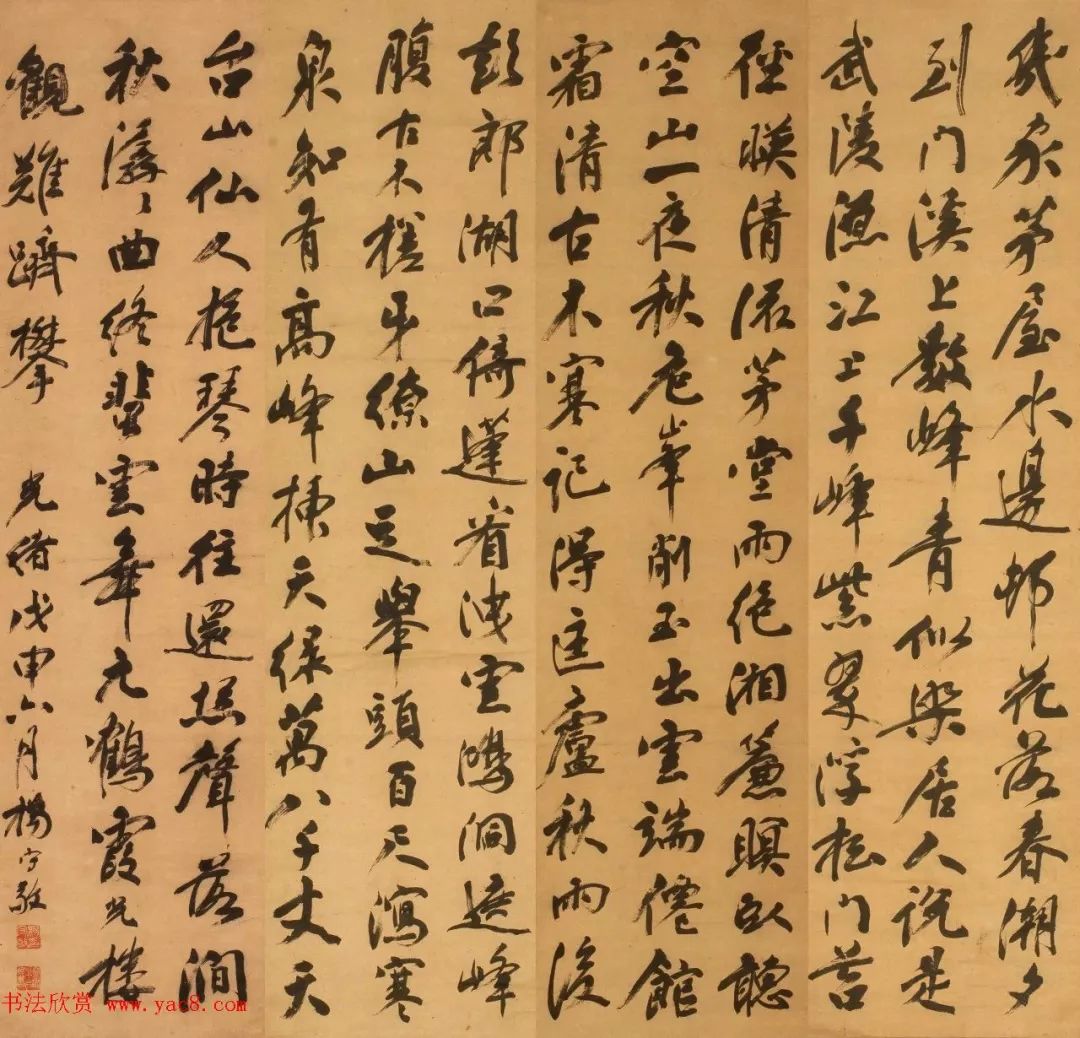 幾家茅屋水邊邨花落春潮夕
到門溪上數峰青似染居人說是
武陵源江上千峰紫翠浮松門苔
徑暎清流茅堂雨色湘簾暝臥聽
空山一夜秋危峯削玉出雲端僊館
霜清古木寒記得匡廬秋雨後
彭郎湖口倚蓬看洩雲鴻洞遶峰
腹古木槎牙繚山足舉頭百尺瀉寒
泉知有高峰插天綠萬八千丈天
台山仙人抱琴時往還松聲落澗
秋潺〻曲終翡雲舞元鶴霞光樓
觀難躋攀
光緒戊申六月楊守敬
书法欣赏 www.yac8.com